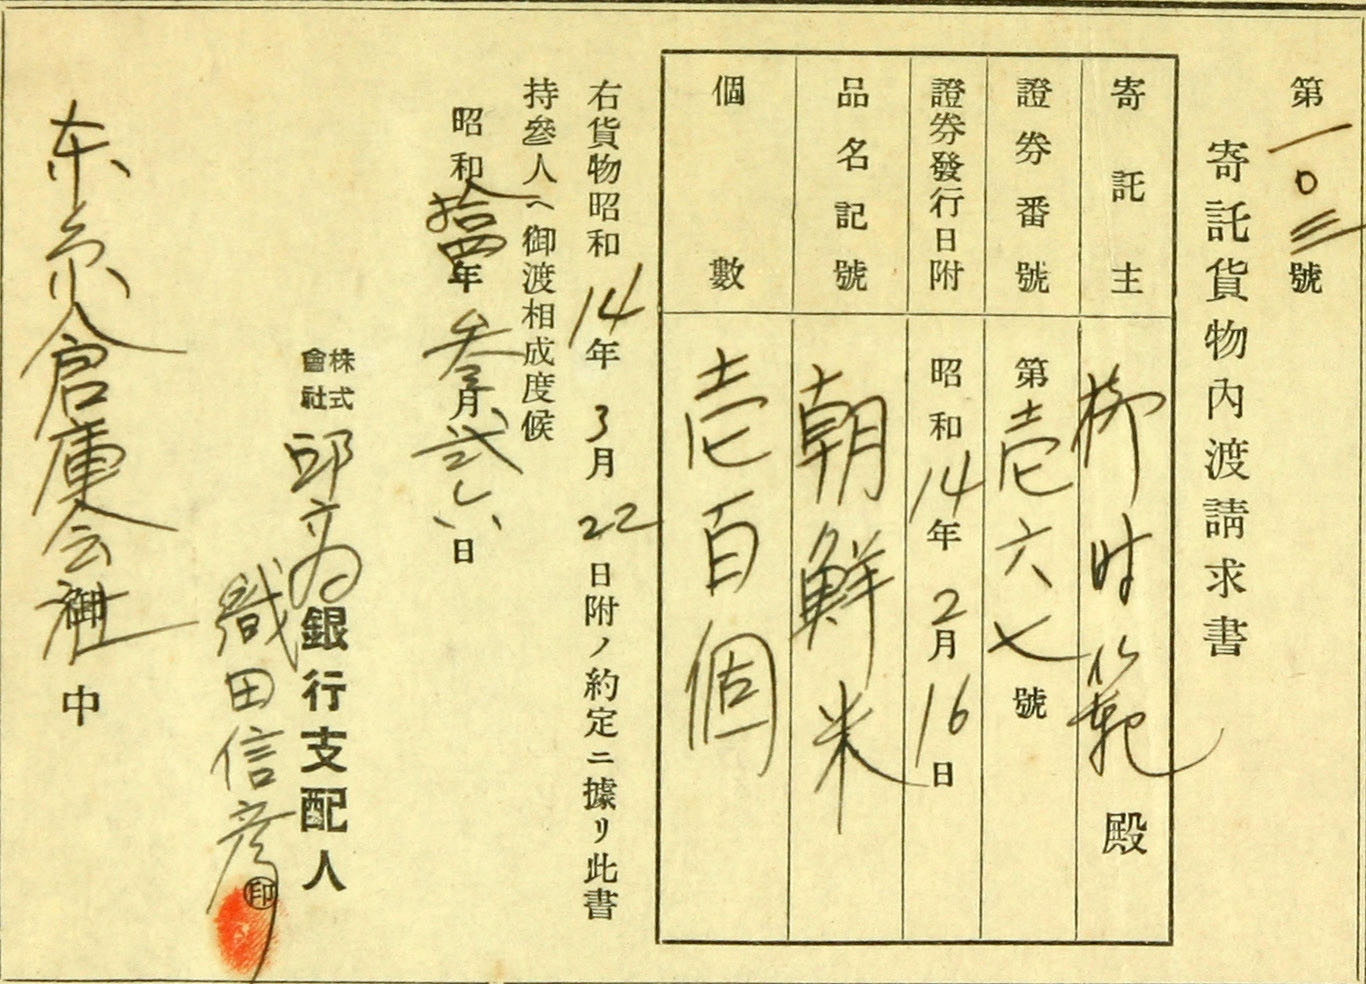 第一〇三號
寄託貨物內渡請求書
寄託主 柳时範殿
證券番號 第壱六七號
證券發行日附 昭和14年2月16日
品名記號 朝鮮米
個數 壱百個
右貨物昭和14年3月22日附ノ約定ニ據リ此書
持參人ヘ御渡相成度候
昭和拾四年参月弐六日
株式會社 銀行支配人
織田信彦㊞
东京倉庫会社御中